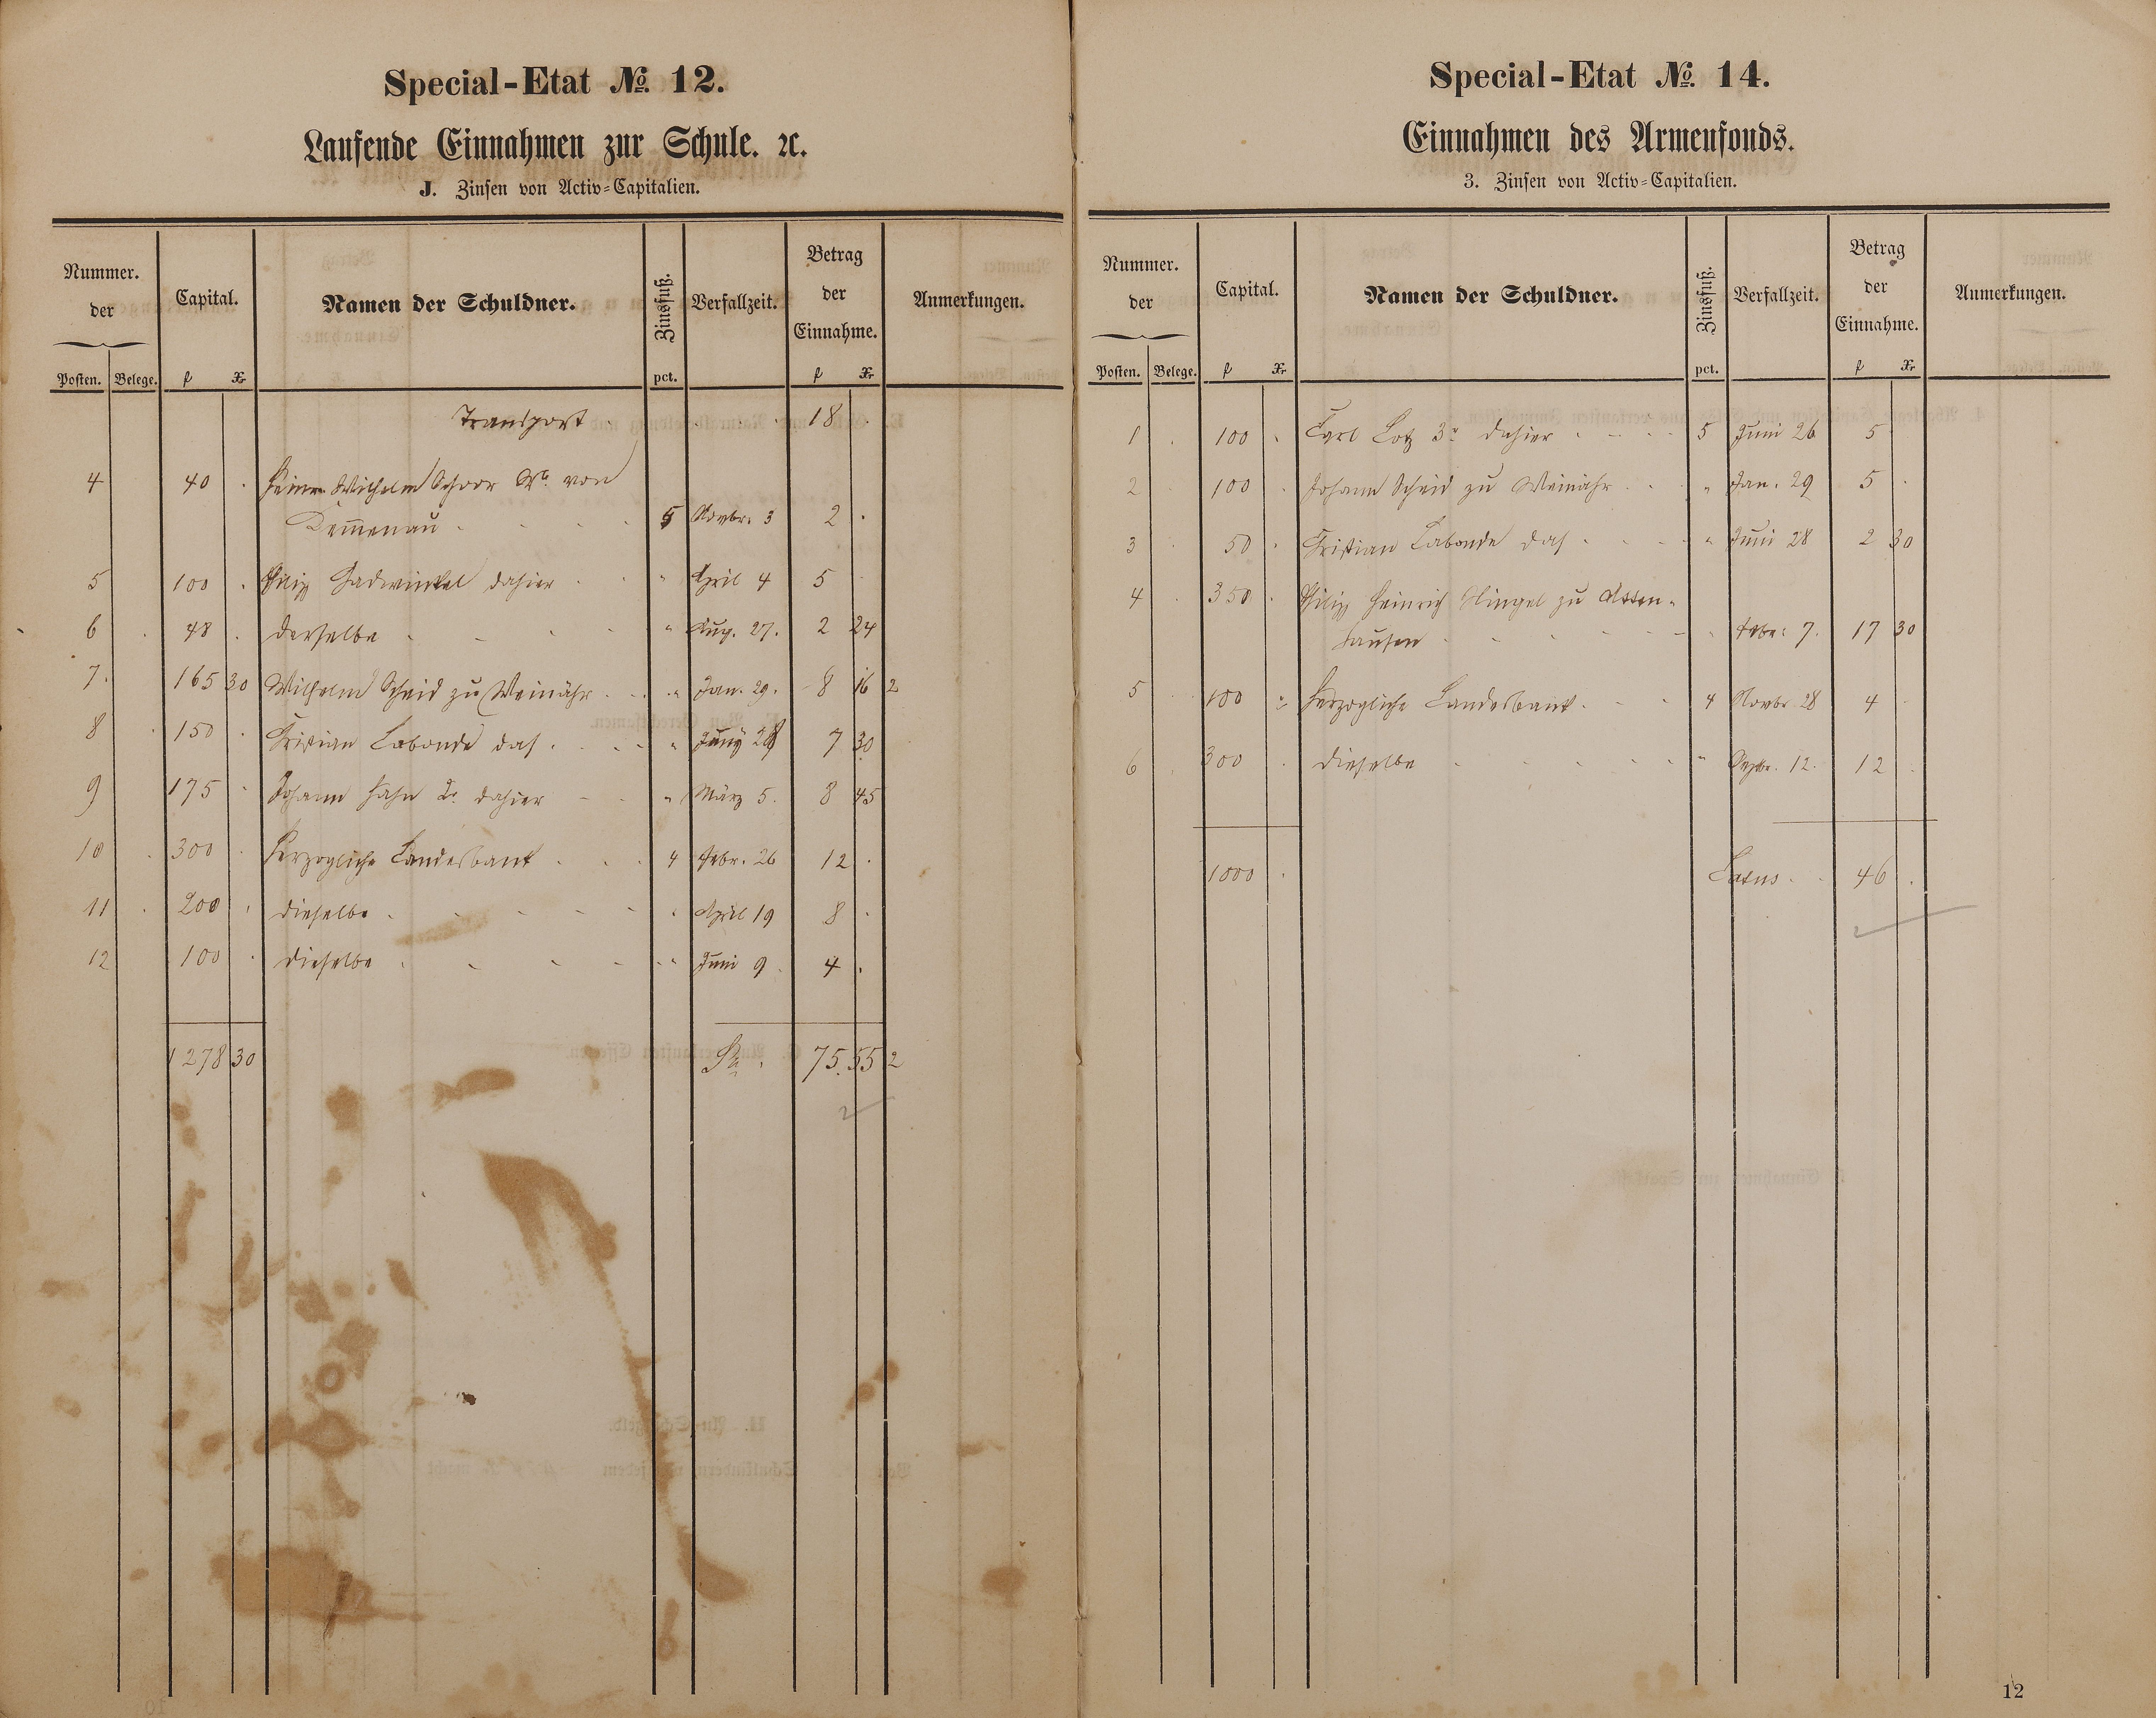 Special-Etat № 12.
Laufende Einnahmen zur Schule. ꝛc.
J. Zinsen von Activ-Capitalien.
Nummer. der
Posten. Belege.
Capital.
f Xr
Namen der Schuldner.
Zinsfuß.
pct.
Verfallzeit.
Betrag der Einnahme.
f Xr
Anmerkungen.
Transport . . . 18 .
4 40 . Wilhelm Schorr Wb. von
Demmenau . . . 5 Novbr. 3 2 .
5 100 . Philipp dahier . . " April 4 5 .
6 . 48 . derselbe . . . . " Aug. 27. 2 24
7. 165 30 Wilhelm Scheid zu Weinähr . . " Jan. 29. 8 16 2
8 . 150 . Cristian Labonde das. . . . " Juny 28 7 30
9 175 . Johann Hahn 2r dahier . . " März 5. 8 45
10 . 300 . Herzogliche Landesbank . . . 4 Febr. 26 12 .
11 . 200 . dieselbe . . . . . " April 19 8 .
12 100 . dieselbe . . . . . " Juni 9. 4 .
1278 30 Sa. . 75. 55 2
Special-Etat № 14.
Einnahmen des Armenfonds.
3. Zinsen von Activ-Capitalien.
Nummer. der
Posten. Belege.
Capital.
f Xr
Namen der Schuldner.
Zinsfuß.
pct.
Verfallzeit.
Betrag der Einnahme.
f Xr
Anmerkungen.
1 . 100 . Carl Lotz 3r dahier . . . . 5 Juni 26 5 .
2 . 100 . Johann Scheid zu Weinähr . . " Jan. 29 5 .
3 . 50 . Cristian Labonde das. . . . " Juni 28 2 30
4 . 350 . Philipp Heinrich zu Atten-
hausen . . . . . " Febr. 7. 17 30
5 . 100 . Herzogliche Landesbank . . . 4 Novbr. 28 4 .
6 . 300 . dieselbe . . . . . " Septbr. 12. 12 .
1000 . Latus . . 46 .
12